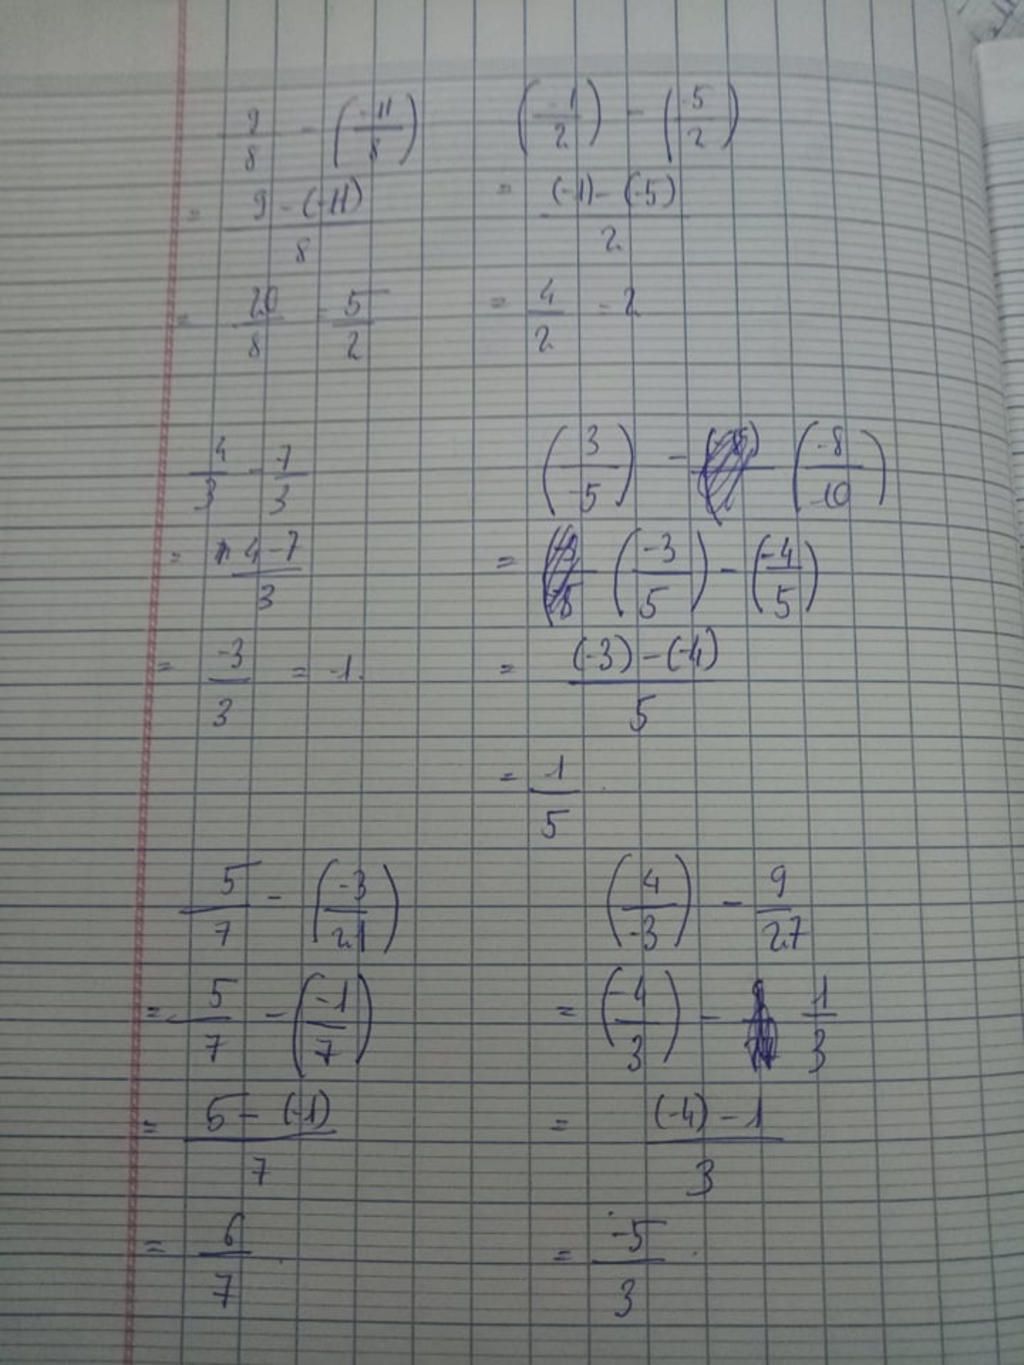 9/8 - (-11/8)
= (9 - (-11))/8
= 20/8 = 5/2
(-1/2) - (-5/2)
= ((-1) - (-5))/2
= 4/2 = 2
4/3 - 7/3
= (4 - 7)/3
= -3/3 = -1.
(3/-5) - (-8/10)
= (-3/5) - (-4/5)
= ((-3) - (-4))/5
= 1/5.
5/7 - (-3/21)
= 5/7 - (-1/7)
= (5 - (-1))/7
= 6/7.
(4/-3) - 9/27
= (-4/3) - 1/3
= ((-4) - 1)/3
= -5/3.